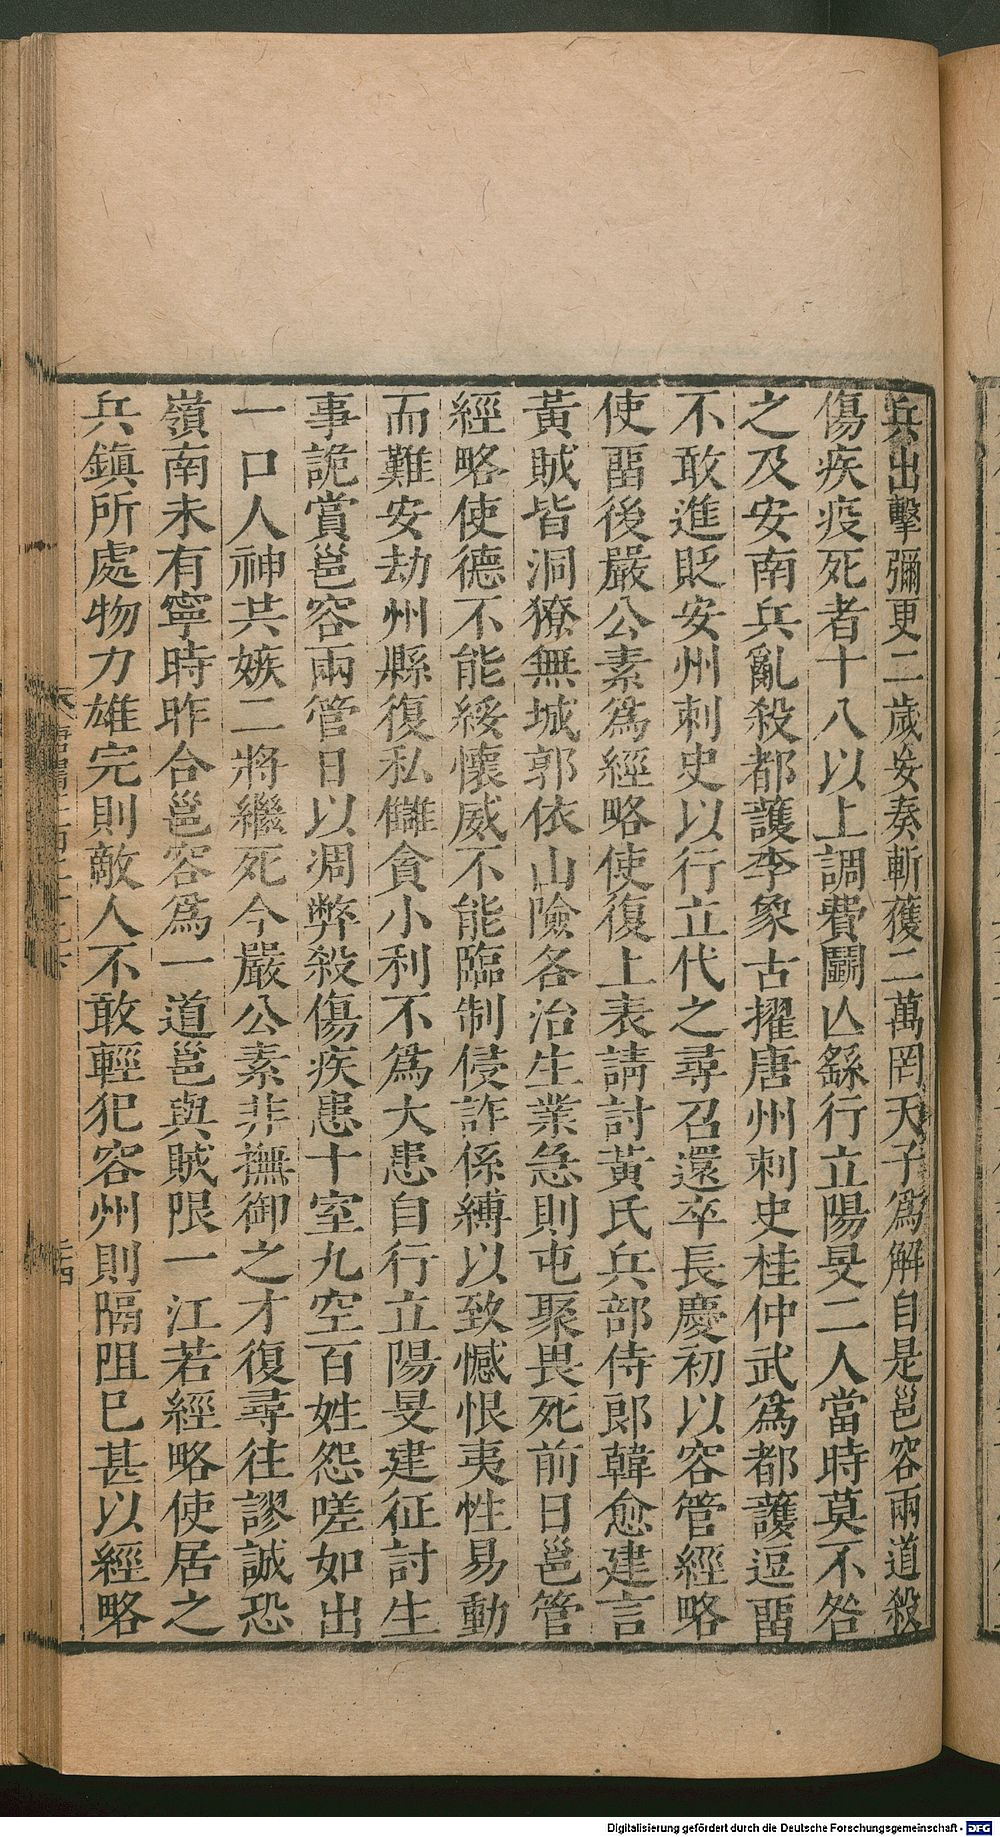 兵出擊彌更二歲妄奏斬獲二萬罔天子爲解自是邕容兩道殺
傷疾疫死者十八以上調費鬬亾繇行立陽旻二人當時莫不咎
之及安南兵亂殺都護李象古擢唐州刺史桂仲武爲都護逗畱
不敢進貶安州刺史以行立代之尋召還卒長慶初以容管經略
使畱後嚴公素爲經略使復上表請討黃氏兵部侍郎韓愈建言
黃賊皆洞獠無城郭依山險各治生業急則屯聚畏死前日邕管
經略使德不能綏懷威不能臨制侵詐係縛以致憾恨夷性易動
而難安劫州縣復私讎貪小利不爲大患自行立陽旻建征討生
事詭賞邕容兩管日以凋弊殺傷疾患十室九空百姓怨嗟如出
一口人神共嫉二將繼死今嚴公素非撫御之才復尋往謬誠恐
嶺南未有寧時昨合邕容爲一道邕與賊限一江若經略使居之
兵鎮所處物力雄完則敵人不敢輕犯容州則隔阻巳甚以經略
Digitalisierung gefördert durch die Deutsche Forschungsgemeinschaft - DFG